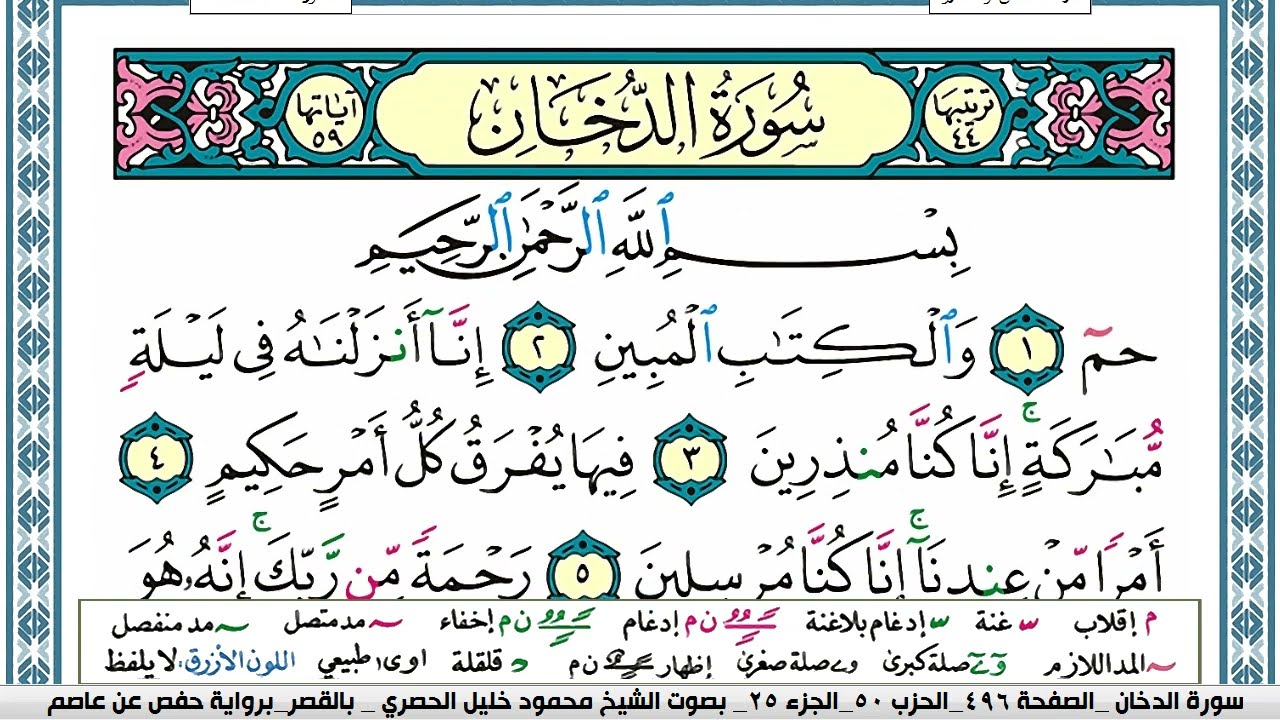 ترتيبها ٤٤ سُورَةُ الدُّخَانِ آياتها ٥٩
بِسْمِ ٱللَّهِ ٱلرَّحْمَٰنِ ٱلرَّحِيمِ
حمٓ ١ وَٱلْكِتَٰبِ ٱلْمُبِينِ ٢ إِنَّآ أَنزَلْنَٰهُ فِى لَيْلَةٍ
مُّبَٰرَكَةٍ ۚ إِنَّا كُنَّا مُنذِرِينَ ٣ فِيهَا يُفْرَقُ كُلُّ أَمْرٍ حَكِيمٍ ٤
أَمْرًا مِّنْ عِندِنَآ ۚ إِنَّا كُنَّا مُرْسِلِينَ ٥ رَحْمَةً مِّن رَّبِّكَ ۚ إِنَّهُۥ هُوَ
م إقلاب س غنة س إدغام بلاغنة ن م إدغام ن م إخفاء ~ مد متصل ~ مد منفصل
~ المد اللازم وے صلة كبرىٰ وے صلة صغرىٰ إظهار ن م د قلقلة اوى طبيعي اللون الأزرق: لا يلفظ
سورة الدخان _الصفحة ٤٩٦_الحزب ٥٠_الجزء ٢٥_ بصوت الشيخ محمود خليل الحصري _ بالقصر_برواية حفص عن عاصم